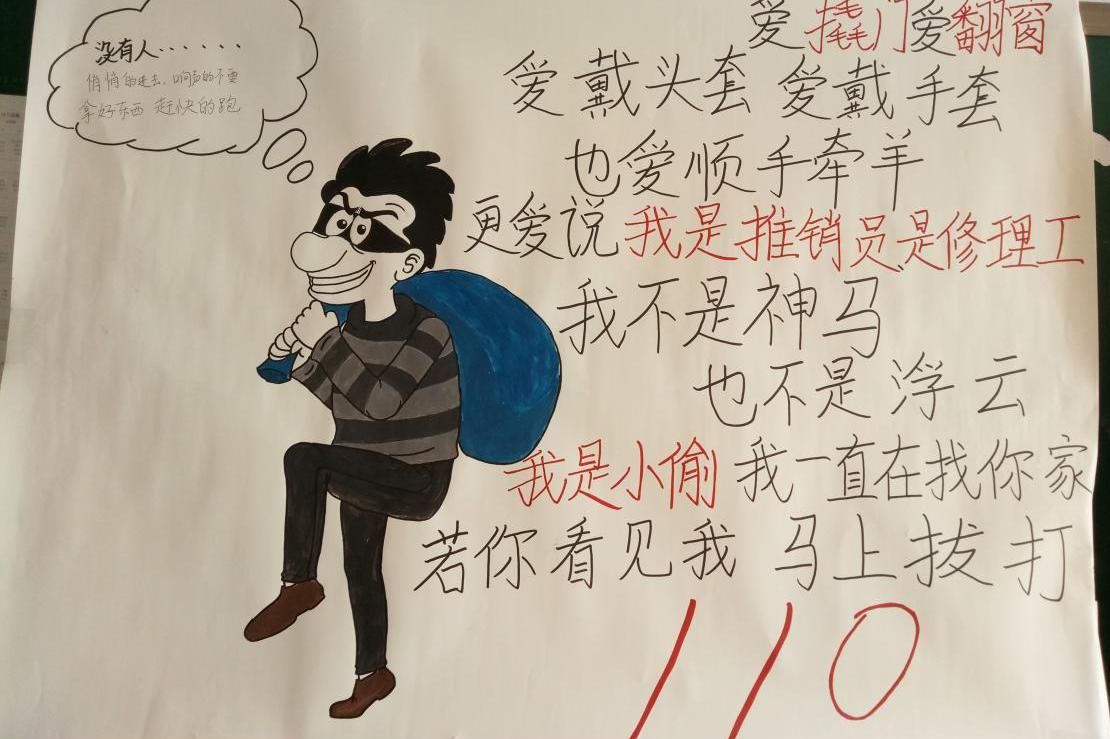 没有人······
悄悄的进去，响动的不要
拿好东西 赶快的跑
爱撬门爱翻窗
爱戴头套 爱戴手套
也爱顺手牵羊
更爱说我是推销员是修理工
我不是神马
也不是浮云
我是小偷 我一直在找你家
若你看见我 马上拔打
110